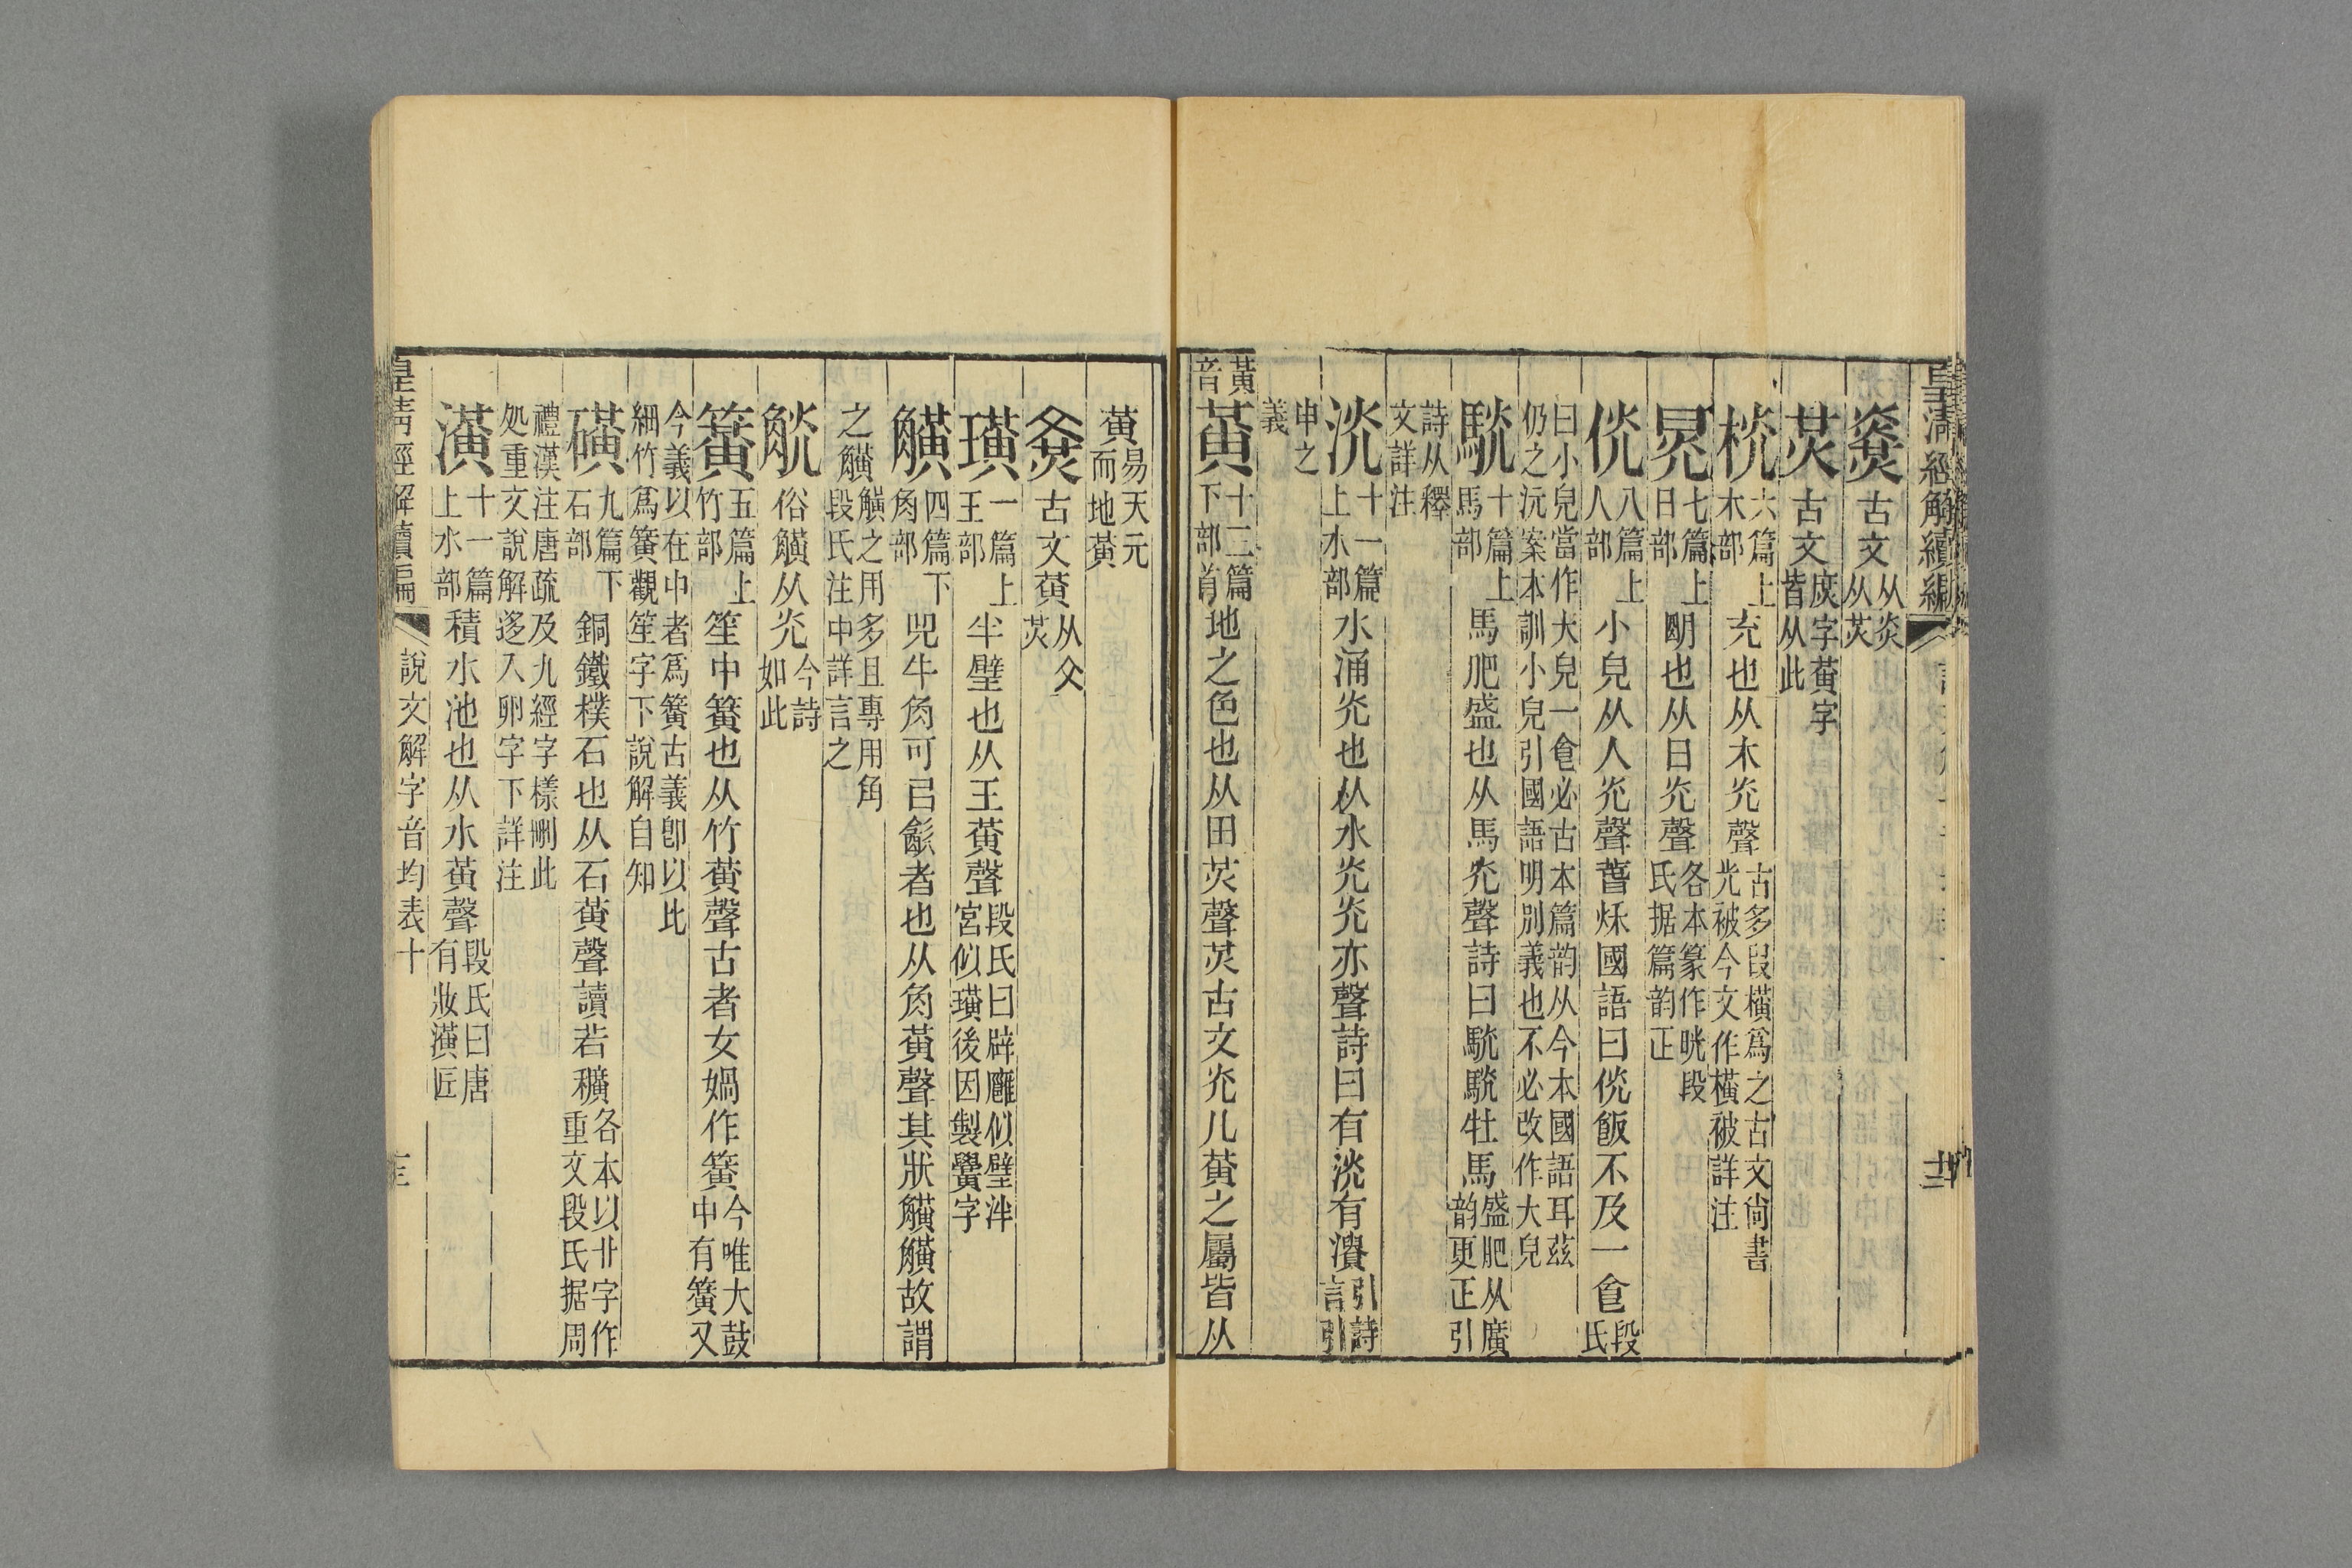 皇淸經解續編
古文从炎从炗
炗古文庶字黃字皆从此
桄六篇上木部充也从木灮聲古多叚橫爲之古文尙書光被今文作橫被詳注
晃七篇上日部朙也从日灮聲各本篆作晄段氏据篇韵正
侊八篇上人部小兒从人灮聲春秌國語曰侊飯不及一食段氏
曰小兒當作大兒一食必古本篇韵从今本國語耳茲仍之沅案本訓小兒引國語明別義也不必改作大兒
駫十篇上馬部馬肥盛也从馬灮聲詩曰駫駫牡馬盛肥从廣韵更正引
詩从釋文詳注
洸十一篇上水部水涌灮也从水灮灮亦聲詩曰有洸有潰引詩言引
申之義
黃音黃十三篇下部首地之色也从田炗聲炗古文灮凡黃之屬皆从
黃易天元而地黃
古文黃从父炗
璜一篇上王部半璧也从王黃聲段氏曰辟廱似璧泮宮似璜後因製黌字
觵四篇下角部兕牛角可㠯飮者也从角黃聲其狀觵觵故謂
之觵觵之用多且專用角段氏注中詳言之
觥俗觵从灮今詩如此
簧五篇上竹部笙中簧也从竹黃聲古者女媧作簧今唯大鼓中有簧又
今義以在中者爲簧古義卽以此細竹爲簧觀笙字下說解自知
磺九篇下石部銅鐵樸石也从石黃聲讀若穬各本以卝字作重文段氏据周
禮漢注唐疏及九經字樣刪此処重文說解迻入卵字下詳注
潢十一篇上水部積水池也从水黃聲段氏曰唐有妝潢匠
皇淸經解續編 說文解字音均表十